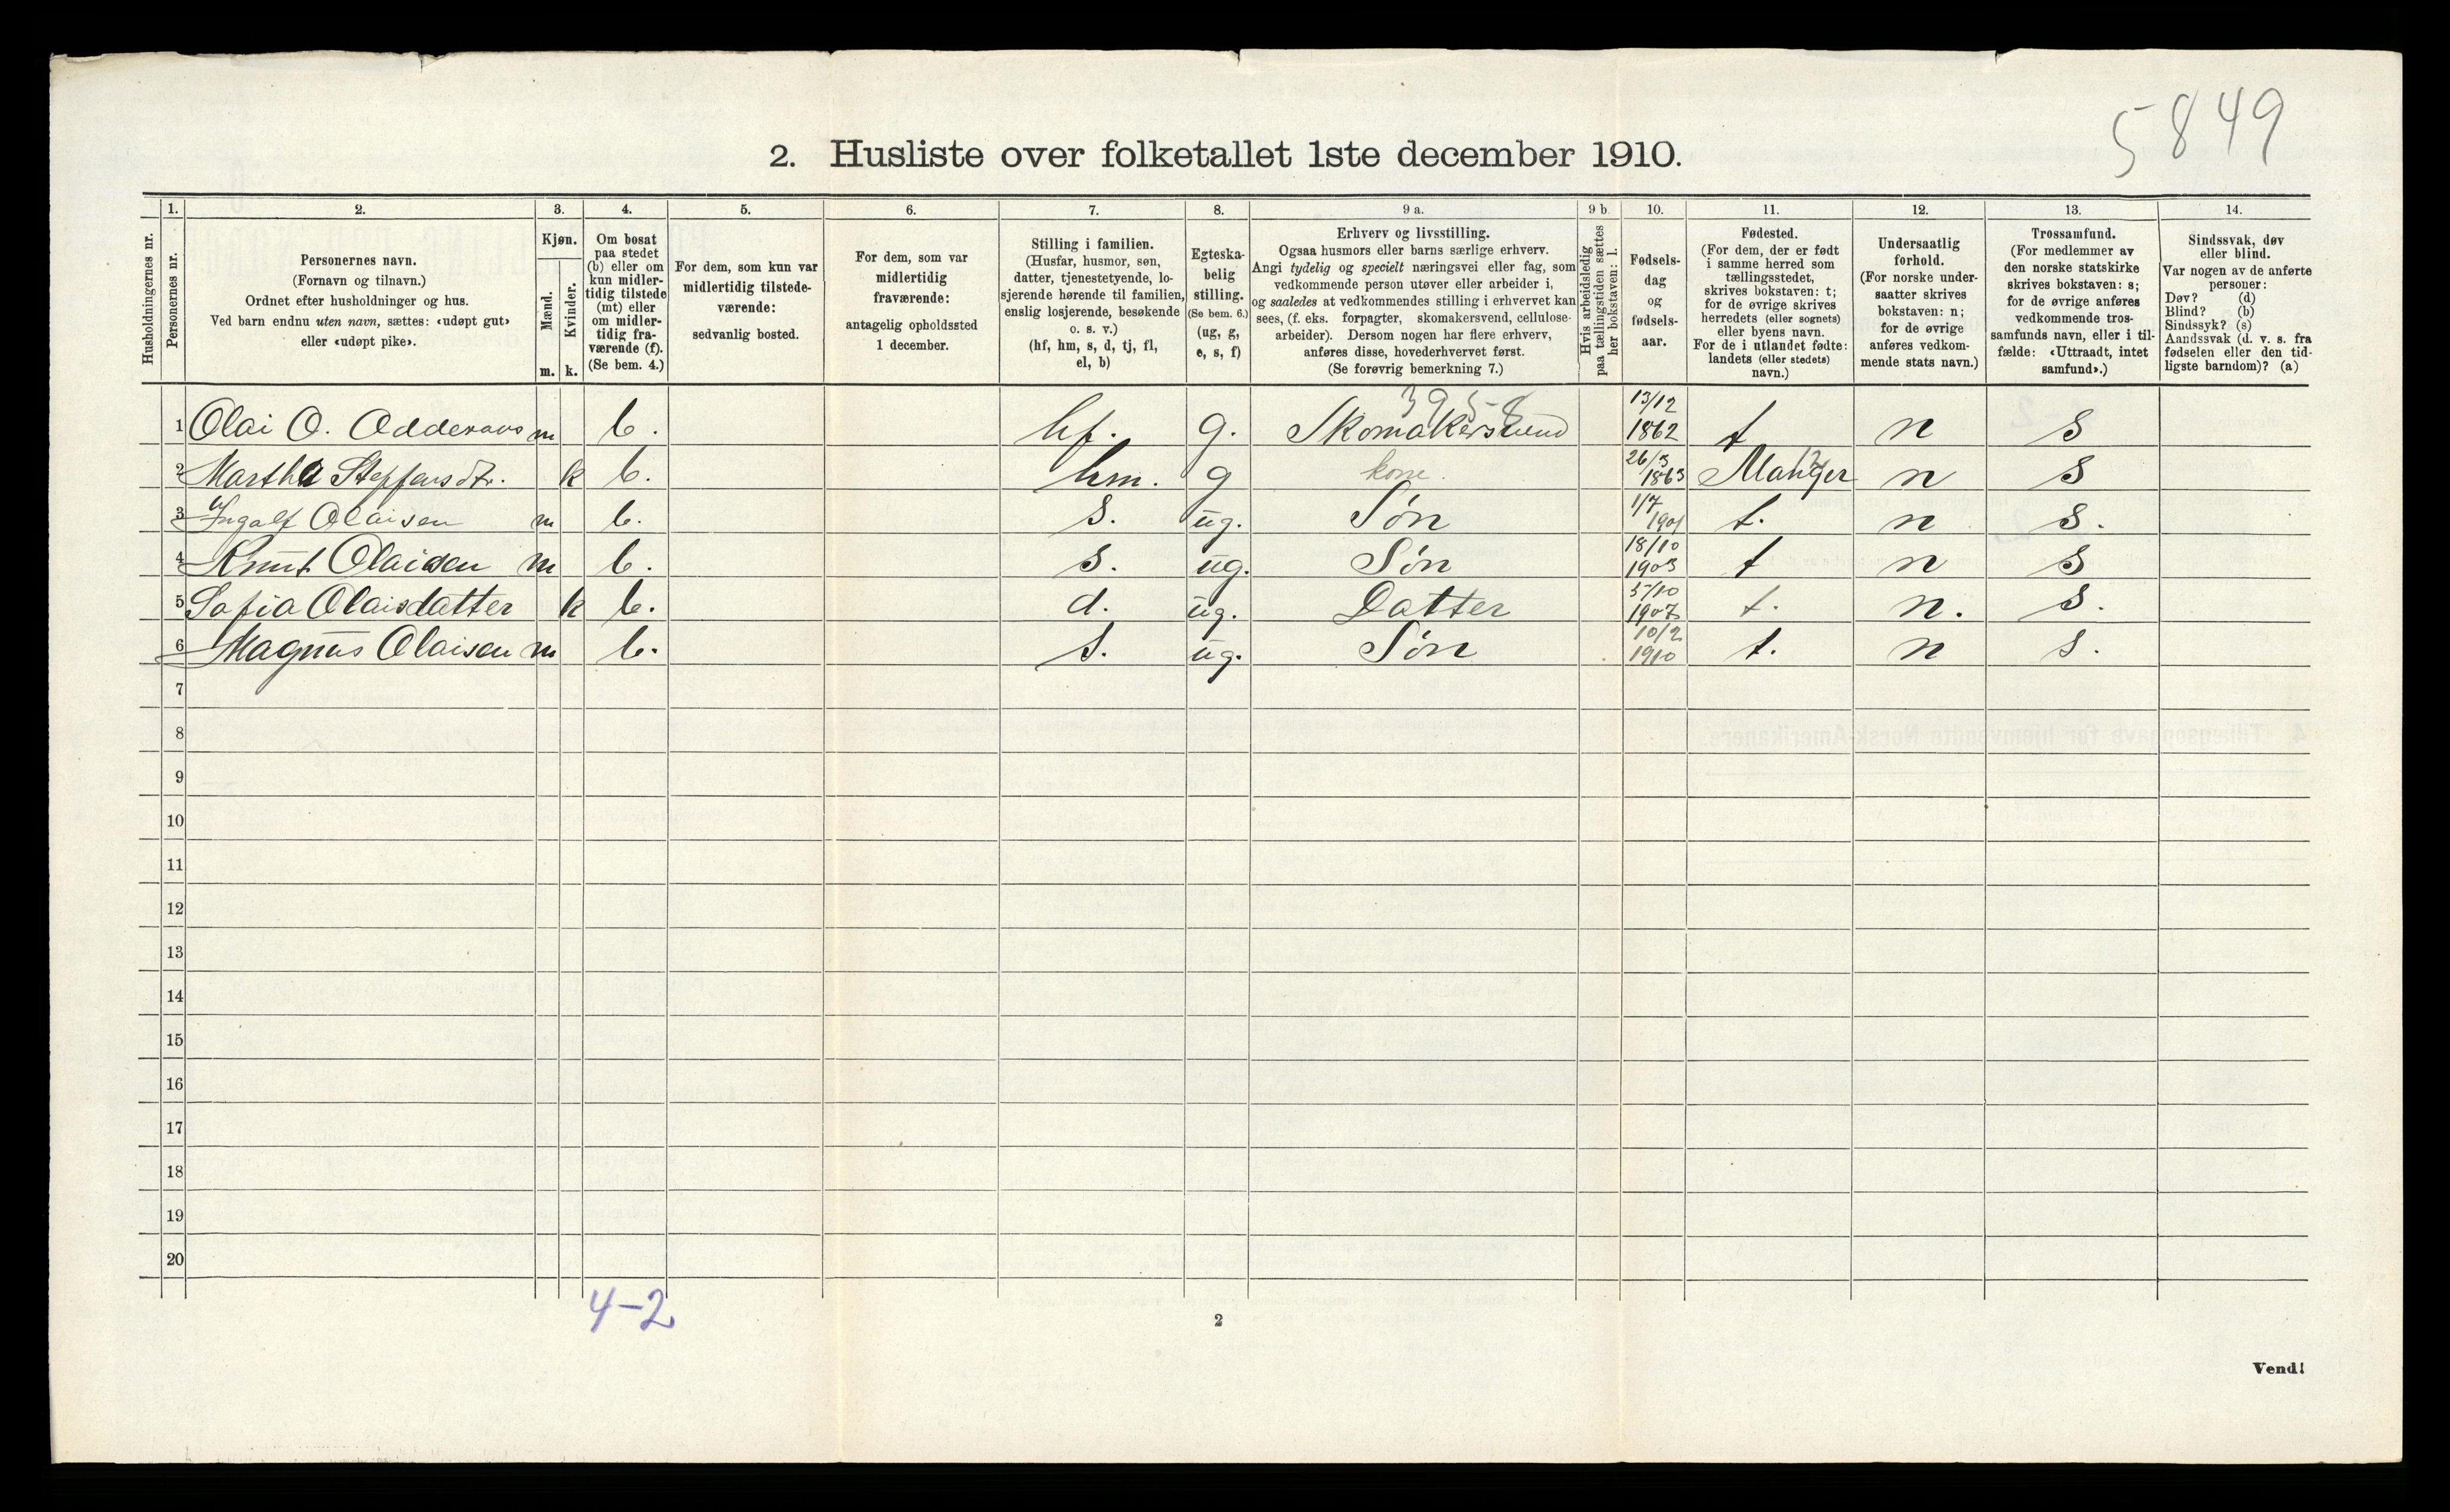 5849
2. Husliste over folketallet 1ste december 1910.
Husholdningernes nr.
1.
Personernes nr.
2.
Personernes navn.
(Fornavn og tilnavn.)
Ordnet efter husholdninger og hus.
Ved barn endnu uten navn, sættes: «udøpt gut»
eller «udøpt pike».
3.
Kjøn.
Mænd.
m.
Kvinder.
k.
4.
Om bosat
paa stedet
(b) eller om
kun midler-
tidig tilstede
(mt) eller
om midler-
tidig fra-
værende (f).
(Se bem. 4.)
5.
For dem, som kun var
midlertidig tilstede-
værende:
sedvanlig bosted.
6.
For dem, som var
midlertidig
fraværende:
antagelig opholdssted
1 december.
7.
Stilling i familien.
(Husfar, husmor, søn,
datter, tjenestetyende, lo-
sjerende hørende til familien,
enslig losjerende, besøkende
o. s. v.)
(hf, hm, s, d, tj, fl,
el, b)
8.
Egteska-
belig
stilling.
(Se bem. 6.)
(ug, g,
e, s, f)
9 a.
Erhverv og livsstilling.
Ogsaa husmors eller barns særlige erhverv.
Angi tydelig og specielt næringsvei eller fag, som
vedkommende person utøver eller arbeider i,
og saaledes at vedkommendes stilling i erhvervet kan
sees, (f. eks. forpagter, skomakersvend, cellulose-
arbeider). Dersom nogen har flere erhverv,
anføres disse, hovederhvervet først.
(Se forøvrig bemerkning 7.)
9 b.
Hvis arbeidsledig
paa tællingstiden sættes
her bokstaven: l.
10.
Fødsels-
dag
og
fødsels-
aar.
11.
Fødested.
(For dem, der er født
i samme herred som
tællingsstedet,
skrives bokstaven: t;
for de øvrige skrives
herredets (eller sognets)
eller byens navn.
For de i utlandet fødte:
landets (eller stedets)
navn.)
12.
Undersaatlig
forhold.
(For norske under-
saatter skrives
bokstaven: n;
for de øvrige
anføres vedkom-
mende stats navn.)
13.
Trossamfund.
(For medlemmer av
den norske statskirke
skrives bokstaven: s;
for de øvrige anføres
vedkommende tros-
samfunds navn, eller i til-
fælde: «Uttraadt, intet
samfund».)
14.
Sindssvak, døv
eller blind.
Var nogen av de anførte
personer:
Døv? (d)
Blind? (b)
Sindssyk? (s)
Aandssvak (d. v. s. fra
fødselen eller den tid-
ligste barndom)? (a)
3958
1 Olai O. m b. hf. g. Skomakersvend 13/12 1862 t n s
2 Martha Steffensdtr. k b. hm. g kone. 26/3 1863 Manger n s
3 Ingolf Olaisen m b. s. ug. Søn 1/7 1901 t. n s.
4 Knut Olaisen m b. s. ug. Søn 18/10 1903 t n s
5 Sofia Olaisdatter k b. d. ug. Datter 5/10 1907 t. n. s.
6 Magnus Olaisen m b. s. ug. Søn 10/2 1910 t. n s.
7
8
9
10
11
12
13
14
15
16
17
18
19
20
4-2
2
Vend!